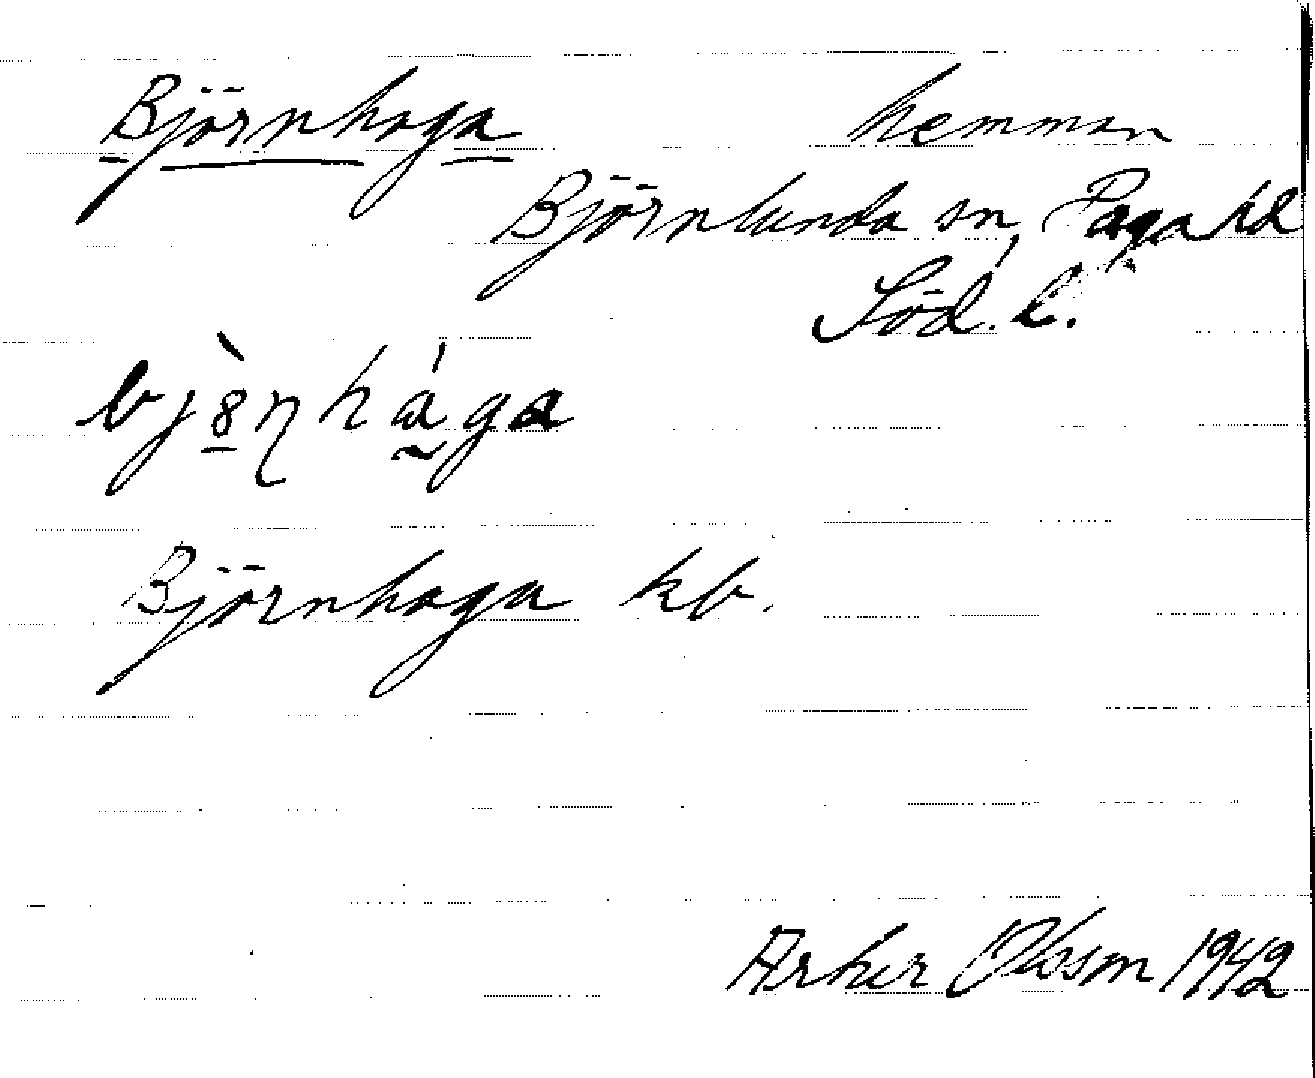 Björnhaga hemman
Björnlunda sn, Daga hd
Söd. l.
Björnhaga kb.
Arthur Olsson 1942